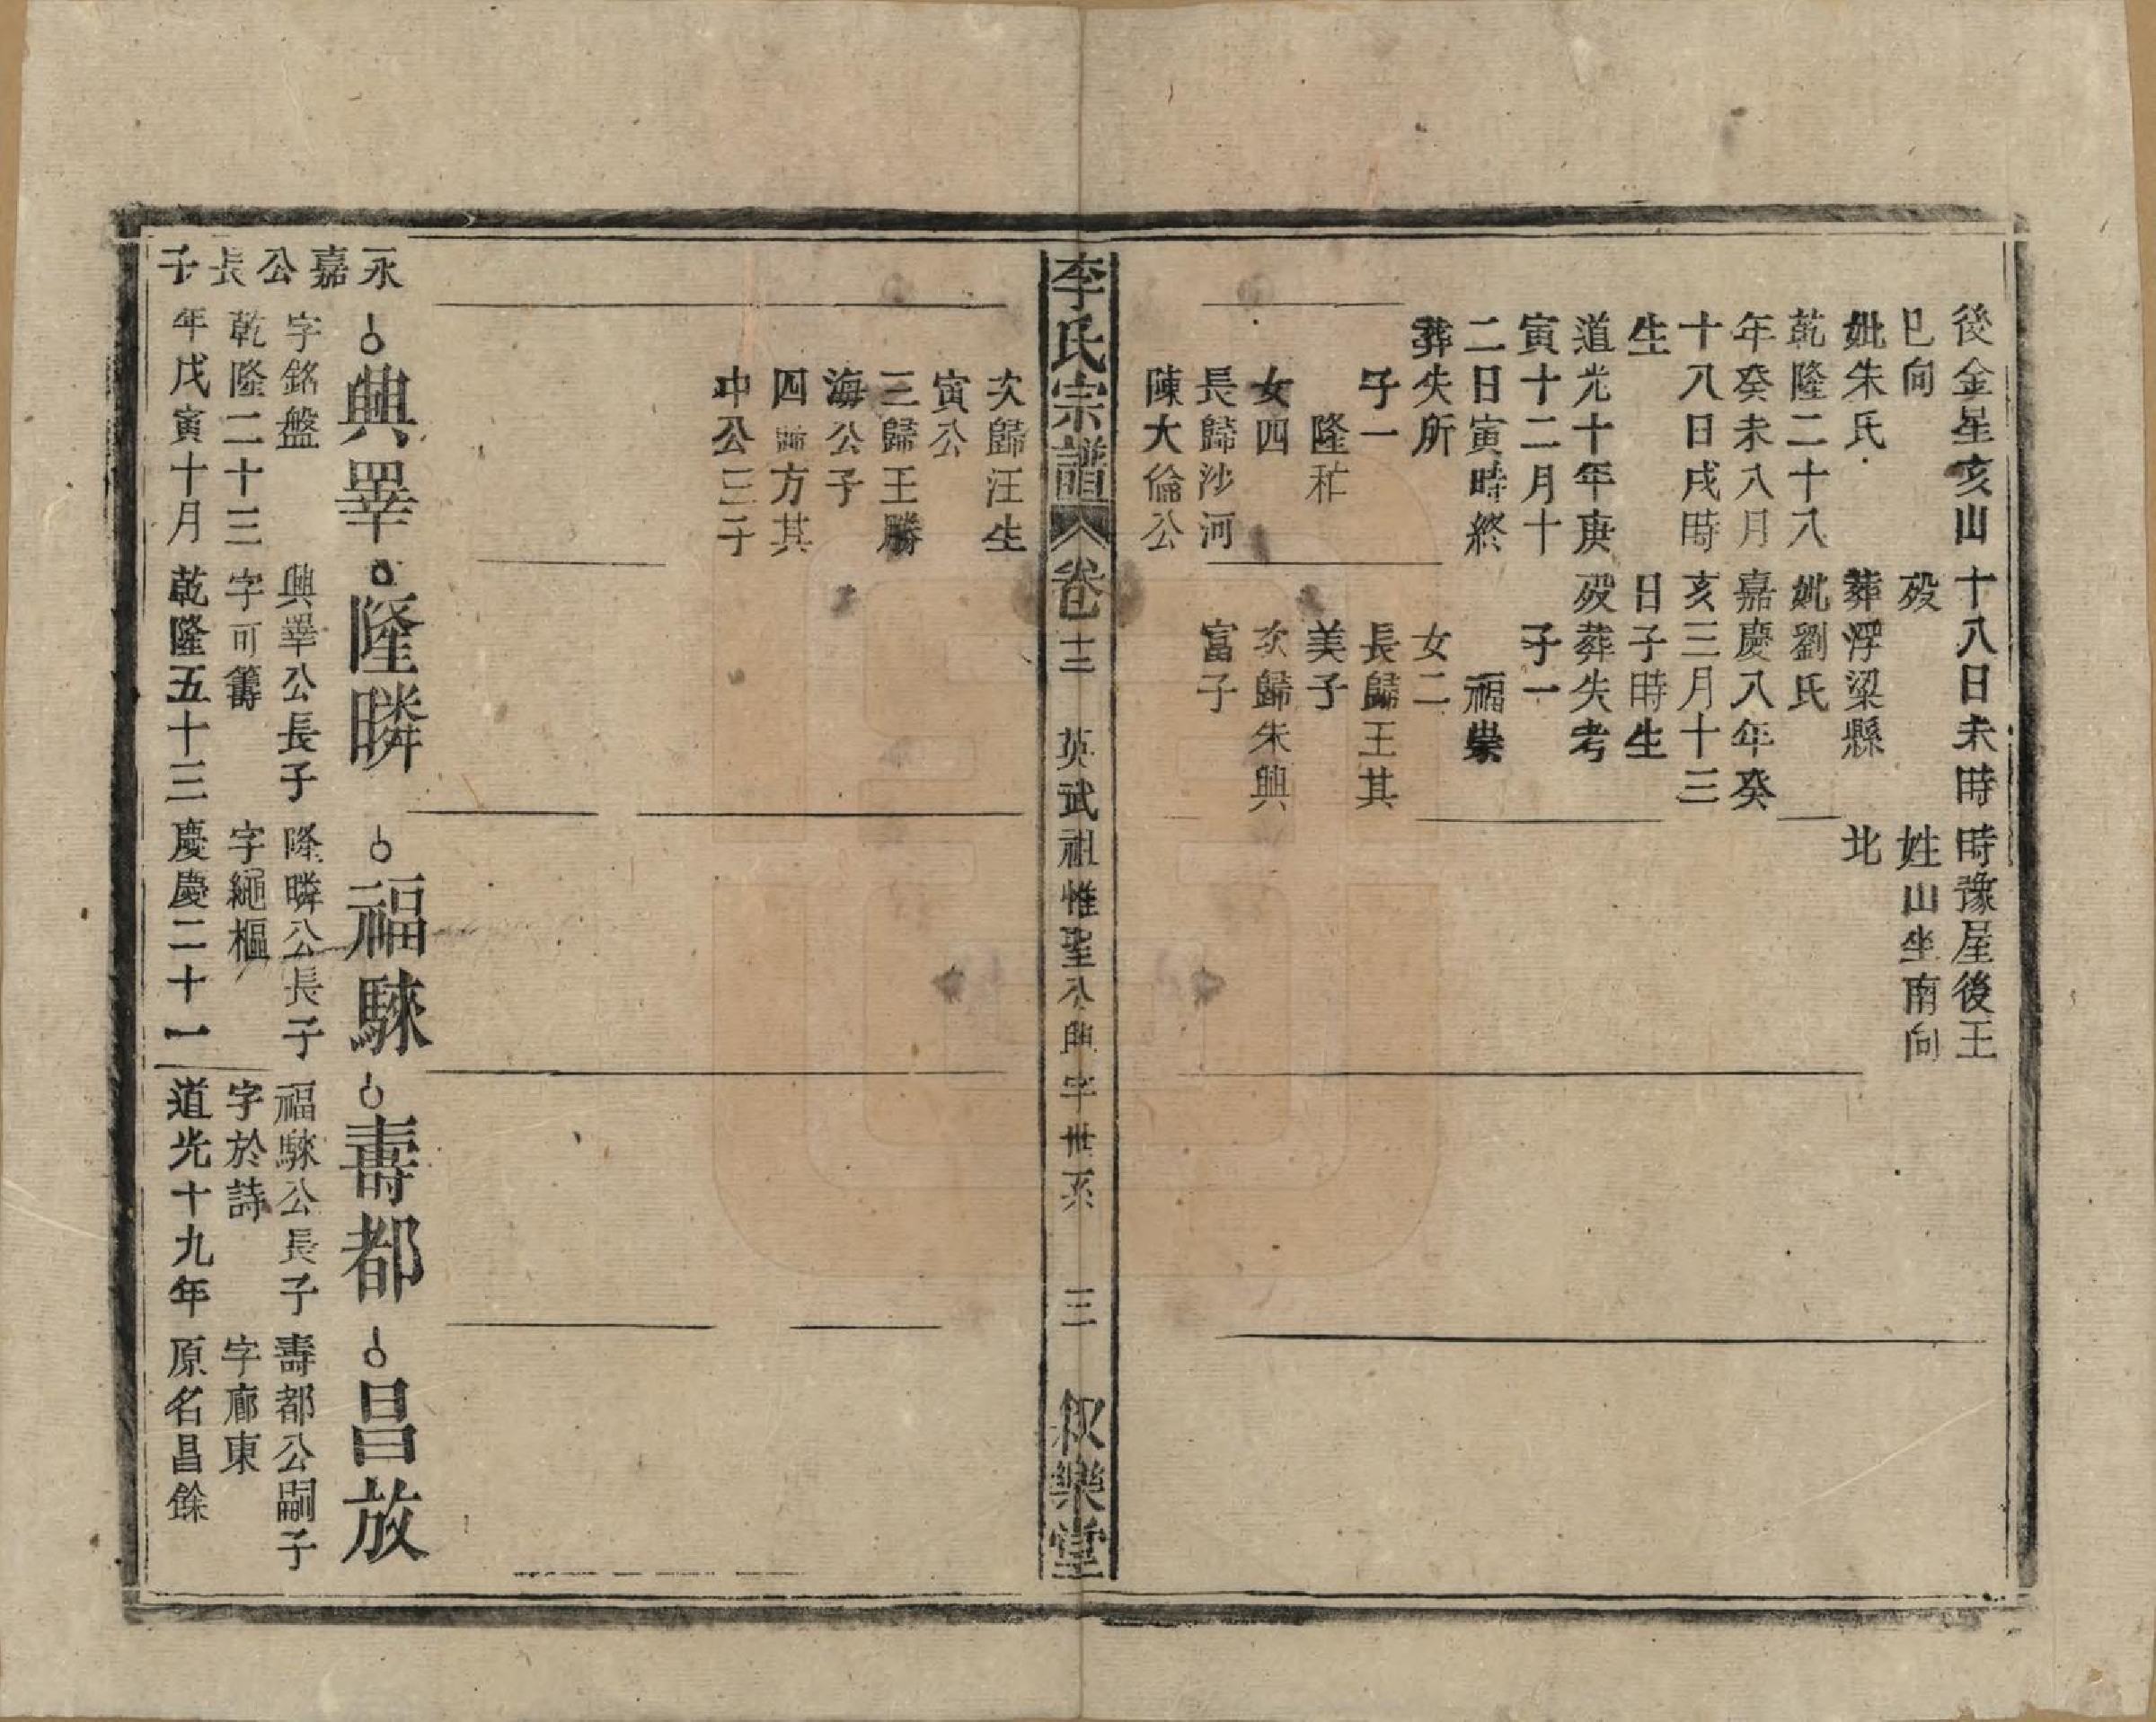 後金星亥山
巳向
妣朱氏
乾隆二十八
年癸未八月
十八日戌時
生
道光十年庚
寅十二月十
二日寅時終
葬失所
子一
隆秠
女四
長歸沙河
陳大倫公
十八日未時
歿
葬浮梁縣
妣劉氏
嘉慶八年癸
亥三月十三
日子時生
歿葬失考
子一
福崇
女二
長歸王其
美子
次歸朱興
富子
時豫屋後王
姓山坐南向
北
李氏宗譜
卷十二
英武祖惟聖公興字世系
三
叙樂堂
次歸汪生
寅公
三歸王勝
海公子
四歸方其
中公三子
永嘉公長子
興睪
字銘盤
乾隆二十三
年戊寅十月
隆暽
興睪公長子
字可籌
乾隆五十三
福騋
隆暽公長子
字繩樞
慶慶二十一
壽都
福騋公長子
字於詩
道光十九年
昌放
壽都公嗣子
字廊東
原名昌餘